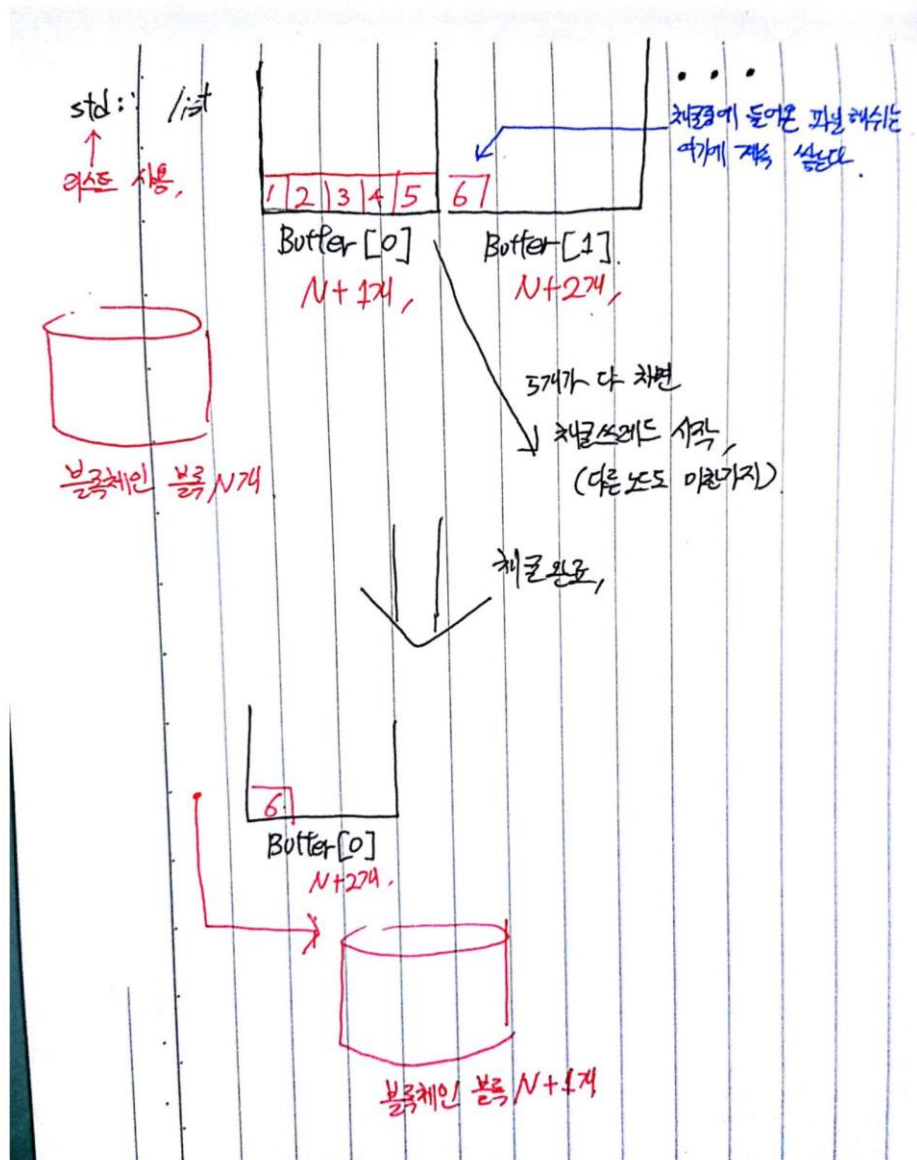 std:: list
리스트 사용,
...
채굴중에 들어온 파일 해쉬는
여기에 계속 쌓는다.
1 2 3 4 5
6
Buffer[0]
N+1개,
Buffer[1]
N+2개,
5개가 다 차면
채굴쓰레드 시작,
(다른 노드도 마찬가지)
블록체인 블록 N개
채굴 완료,
6
Buffer[0]
N+2개,
블록체인 블록 N+1개